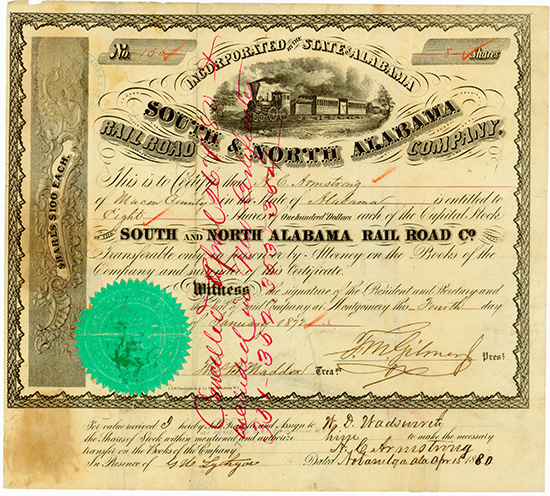 No. 150
8 Shares
INCORPORATED BY THE STATE OF ALABAMA
SOUTH & NORTH ALABAMA
RAIL ROAD COMPANY.
SHARES $100 EACH.
This is to Certify that H. C. Armstrong
of Macon County in the State of Alabama is entitled to
Eight Shares of One hundred Dollars each of the Capital Stock
OF THE SOUTH AND NORTH ALABAMA RAIL ROAD Co.
Transferable only in person or by Attorney on the Books of the
Company and surrender of this Certificate.
Witness the signature of the President and Secretary and
the Seal of said Company at Montgomery this Fourth day
of January 1872
F. M. Gilmer Prest.
Maddox Treasr.
Cancelled
For value received I hereby Sell, Transfer and Assign to W. D. Wadsworth
the Shares of Stock within mentioned and authorize him to make the necessary
transfer on the Books of the Company. H. C. Armstrong
In Presence of Dated Notasulga Ala Apr 15 1880